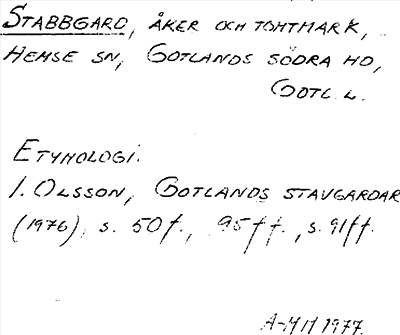 STABBGARD, ÅKER OCH TOMTMARK,
HEMSE SN, GOTLANDS SÖDRA HD,
GOTL. L.
ETYMOLOGI:
I. OLSSON, GOTLANDS STAVGARDAR
(1976), s. 50 f., 95 ff., s. 91 ff.
1977.